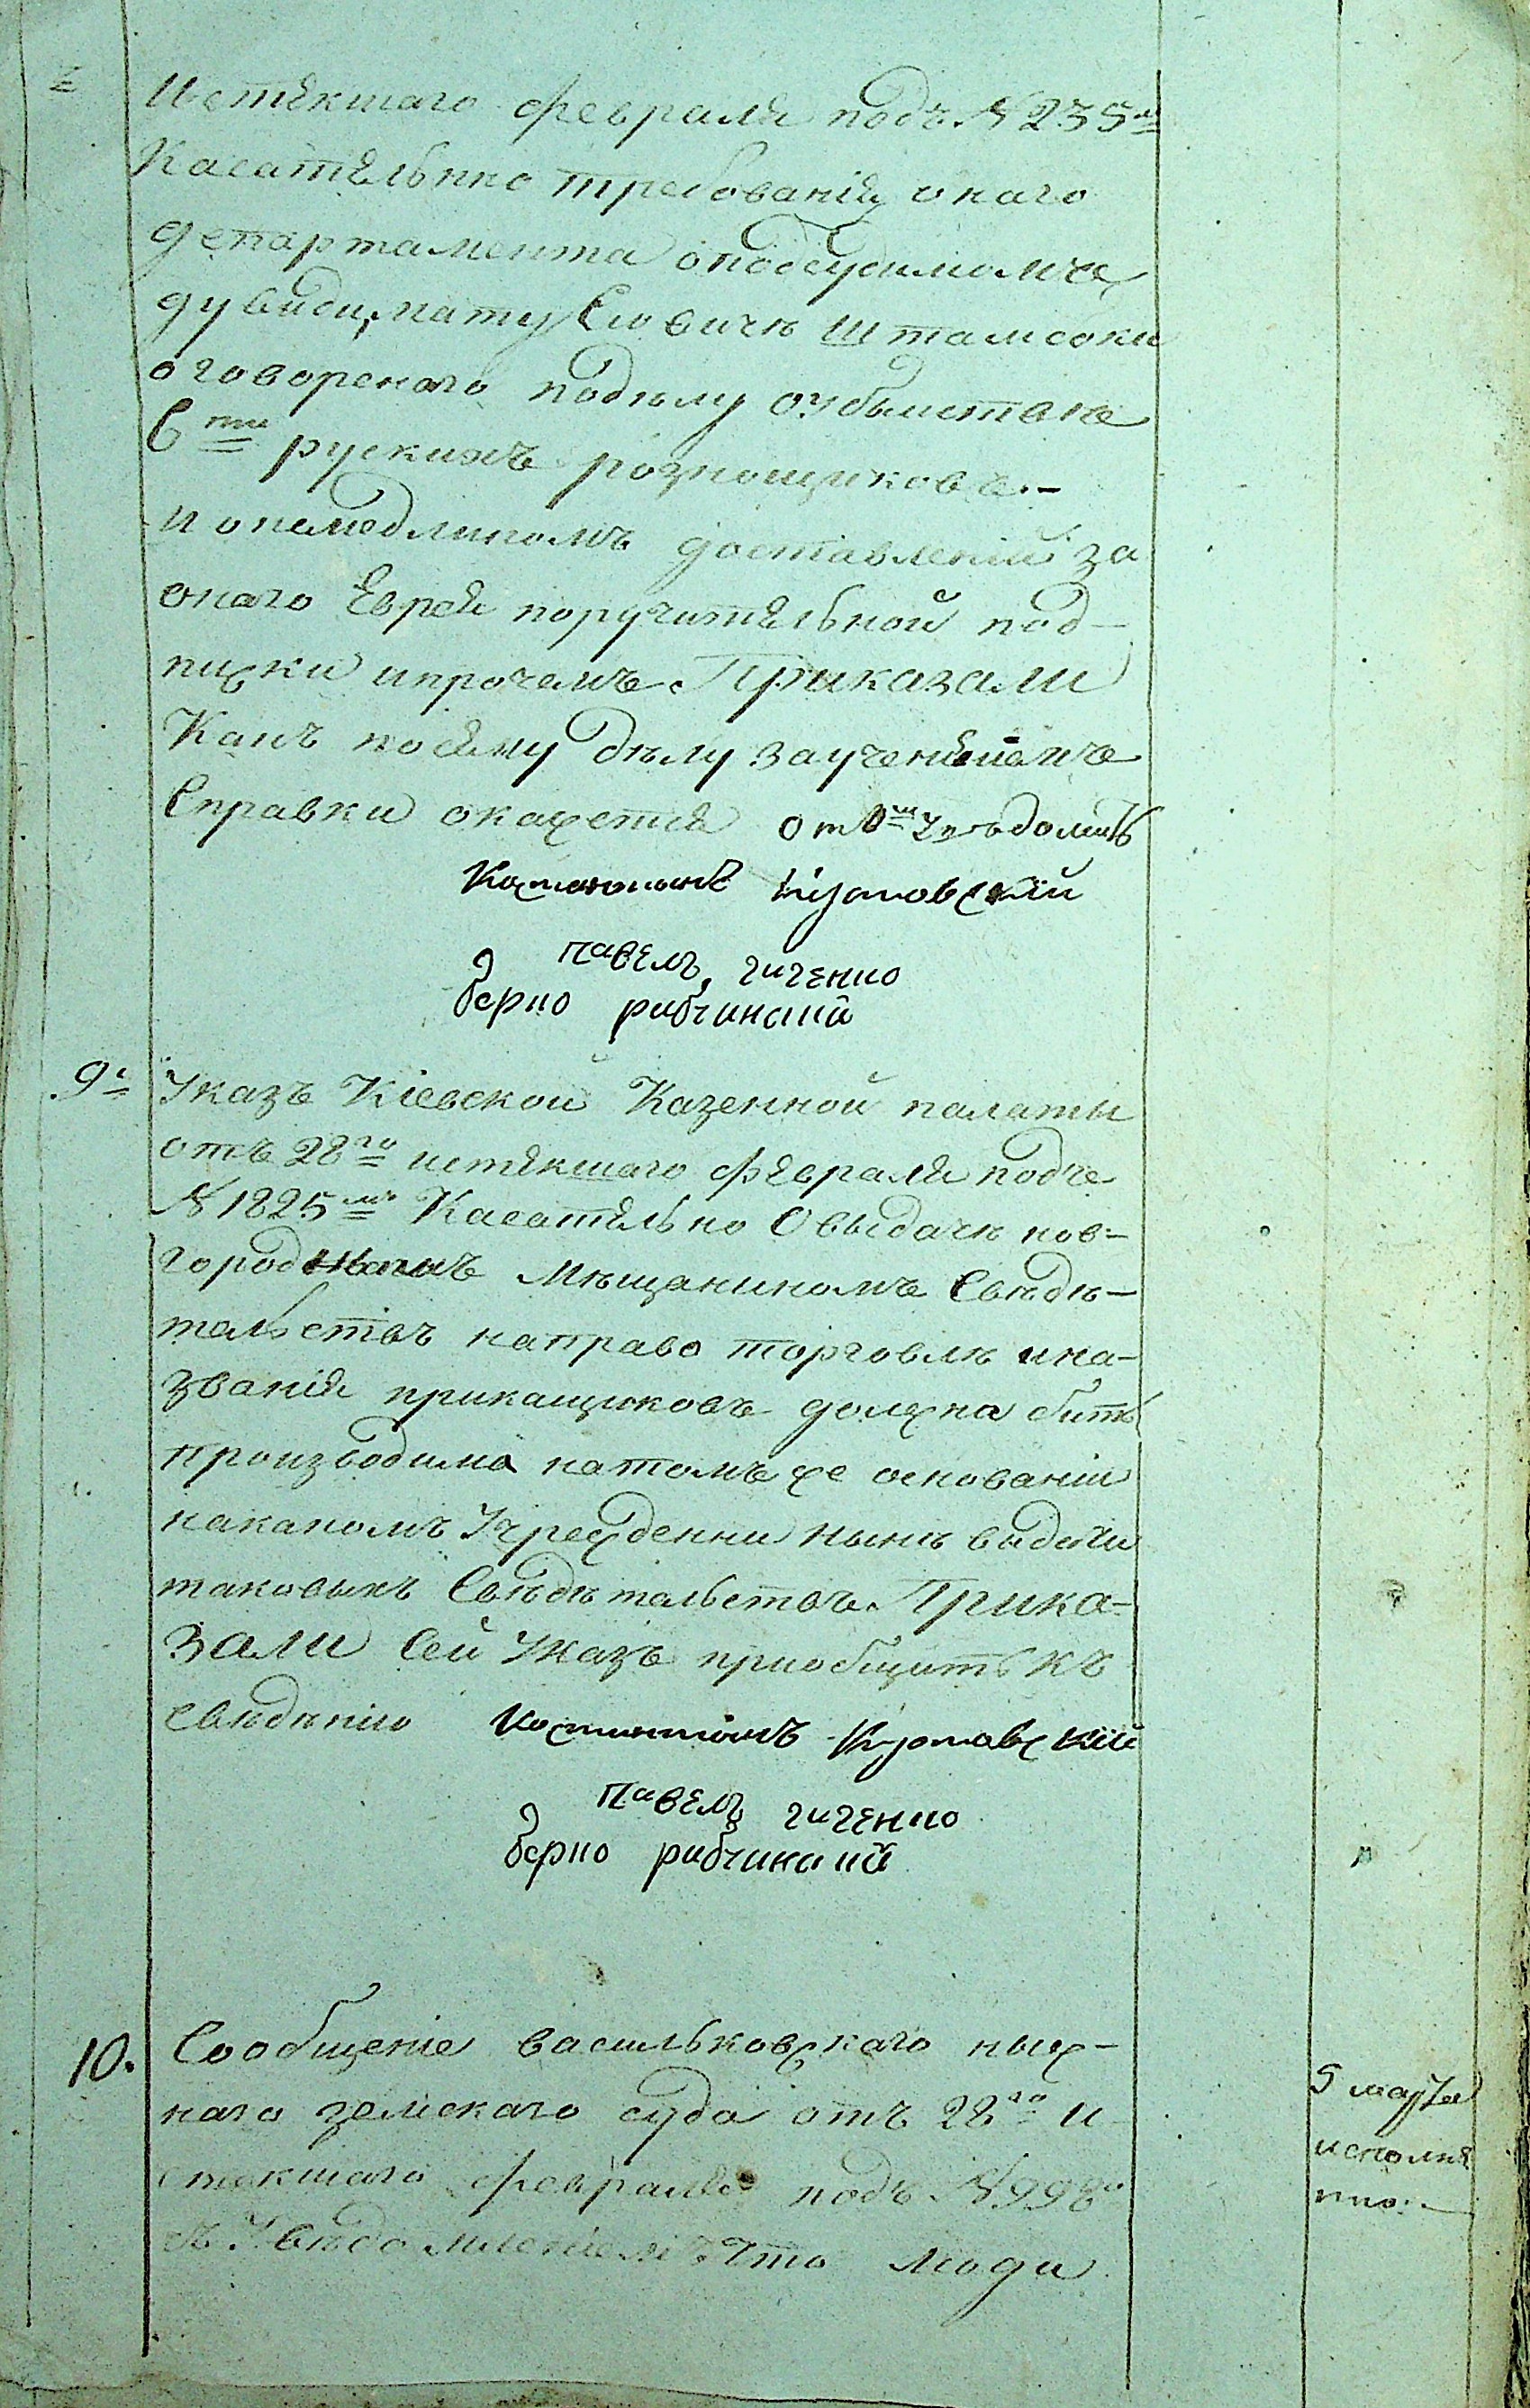 истекшаго февраля подъ №235м
Касательно требованія онаго
департамента оподсудимомъ
оговоренаго поделу оубыстве
6ти рускихъ рознощиковъ.-
и онемедлиномъ доставленіи за
онаго Еврея поручительной под-
писки ипрочемъ. Приказали
Какъ посему делу заучененіемъ
Справки окажется от
Костантинъ
павелъ гиченко
берко рибчинскій
9е Указъ Кіевской Казенной палаты
отъ 28го истекшаго февраля подъ
№1825мъ Касательно Овыдачѣ нов-
мѣщаниномъ Свѣдѣ-
тельствъ направо торговлѣ ина-
званія прикащиковъ должна бить
производима натомъ же основаніи
накакомъ Учреждении нынѣ видачи
таковыхъ Свѣдѣтельствъ. Прика-
зали Сей Указъ приобщить къ
свѣдѣнію Костантинъ
павелъ гиченко
берко рибчинскій
10. Сообщеніе васильковскаго ниж-
няго земскаго суда отъ 28го и
стекшаго февраля подъ №998
съ Увѣдомленіемъ что люди
5 марта
исполне
нно.-